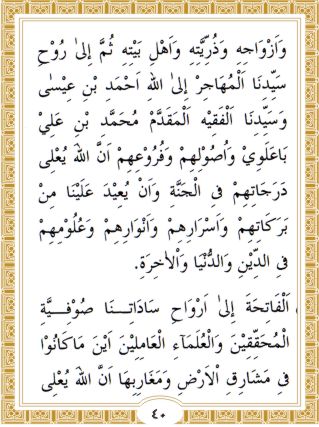 وَاَزْوَاجِهِ وَذُرِّيَّتِهِ وَاَهْلِ بَيْتِهِ ثُمَّ اِلىٰ رُوْحِ
سَيِّدِنَا اَلْمُهَاجِرْ اِلىٰ اللهِ اَحْمَدِ بْنِ عِيْسٰى
وَسَيِّدِنَا اَلْفَقِيْهِ اَلْمُقَدَّمْ مُحَمَّدِ بْنِ عَلِيْ
بَاعَلَوِيْ وَاُصُوْلِهِمْ وَفُرُوْعِهِمْ اَنَّ اللهَ يُعْلِى
دَرَجَاتِهِمْ فِى الْجَنَّةِ وَاَنْ يُعِيْدَ عَلَيْنَا مِنْ
بَرَكَاتِهِمْ وَاَسْرَارِهِمْ وَاَنْوَارِهِمْ وَعُلُوْمِهِمْ
فِى الدِّيْنِ وَالدُّنْيَا وَاْلاٰخِرَةِ.
اَلْفَاتِحَةَ اِلىٰ اَرْوَاحِ سَادَاتِنَا صُوْفِيَّةِ
الْمُحَقِّقِيْنَ وَالْعُلَمَآءِ الْعَامِلِيْنَ اَيْنَ مَاكَانُوْا
فِى مَشَارِقِ اْلاَرْضِ وَمَغَارِبِهَا اَنَّ اللهَ يُعْلِى
٤٠